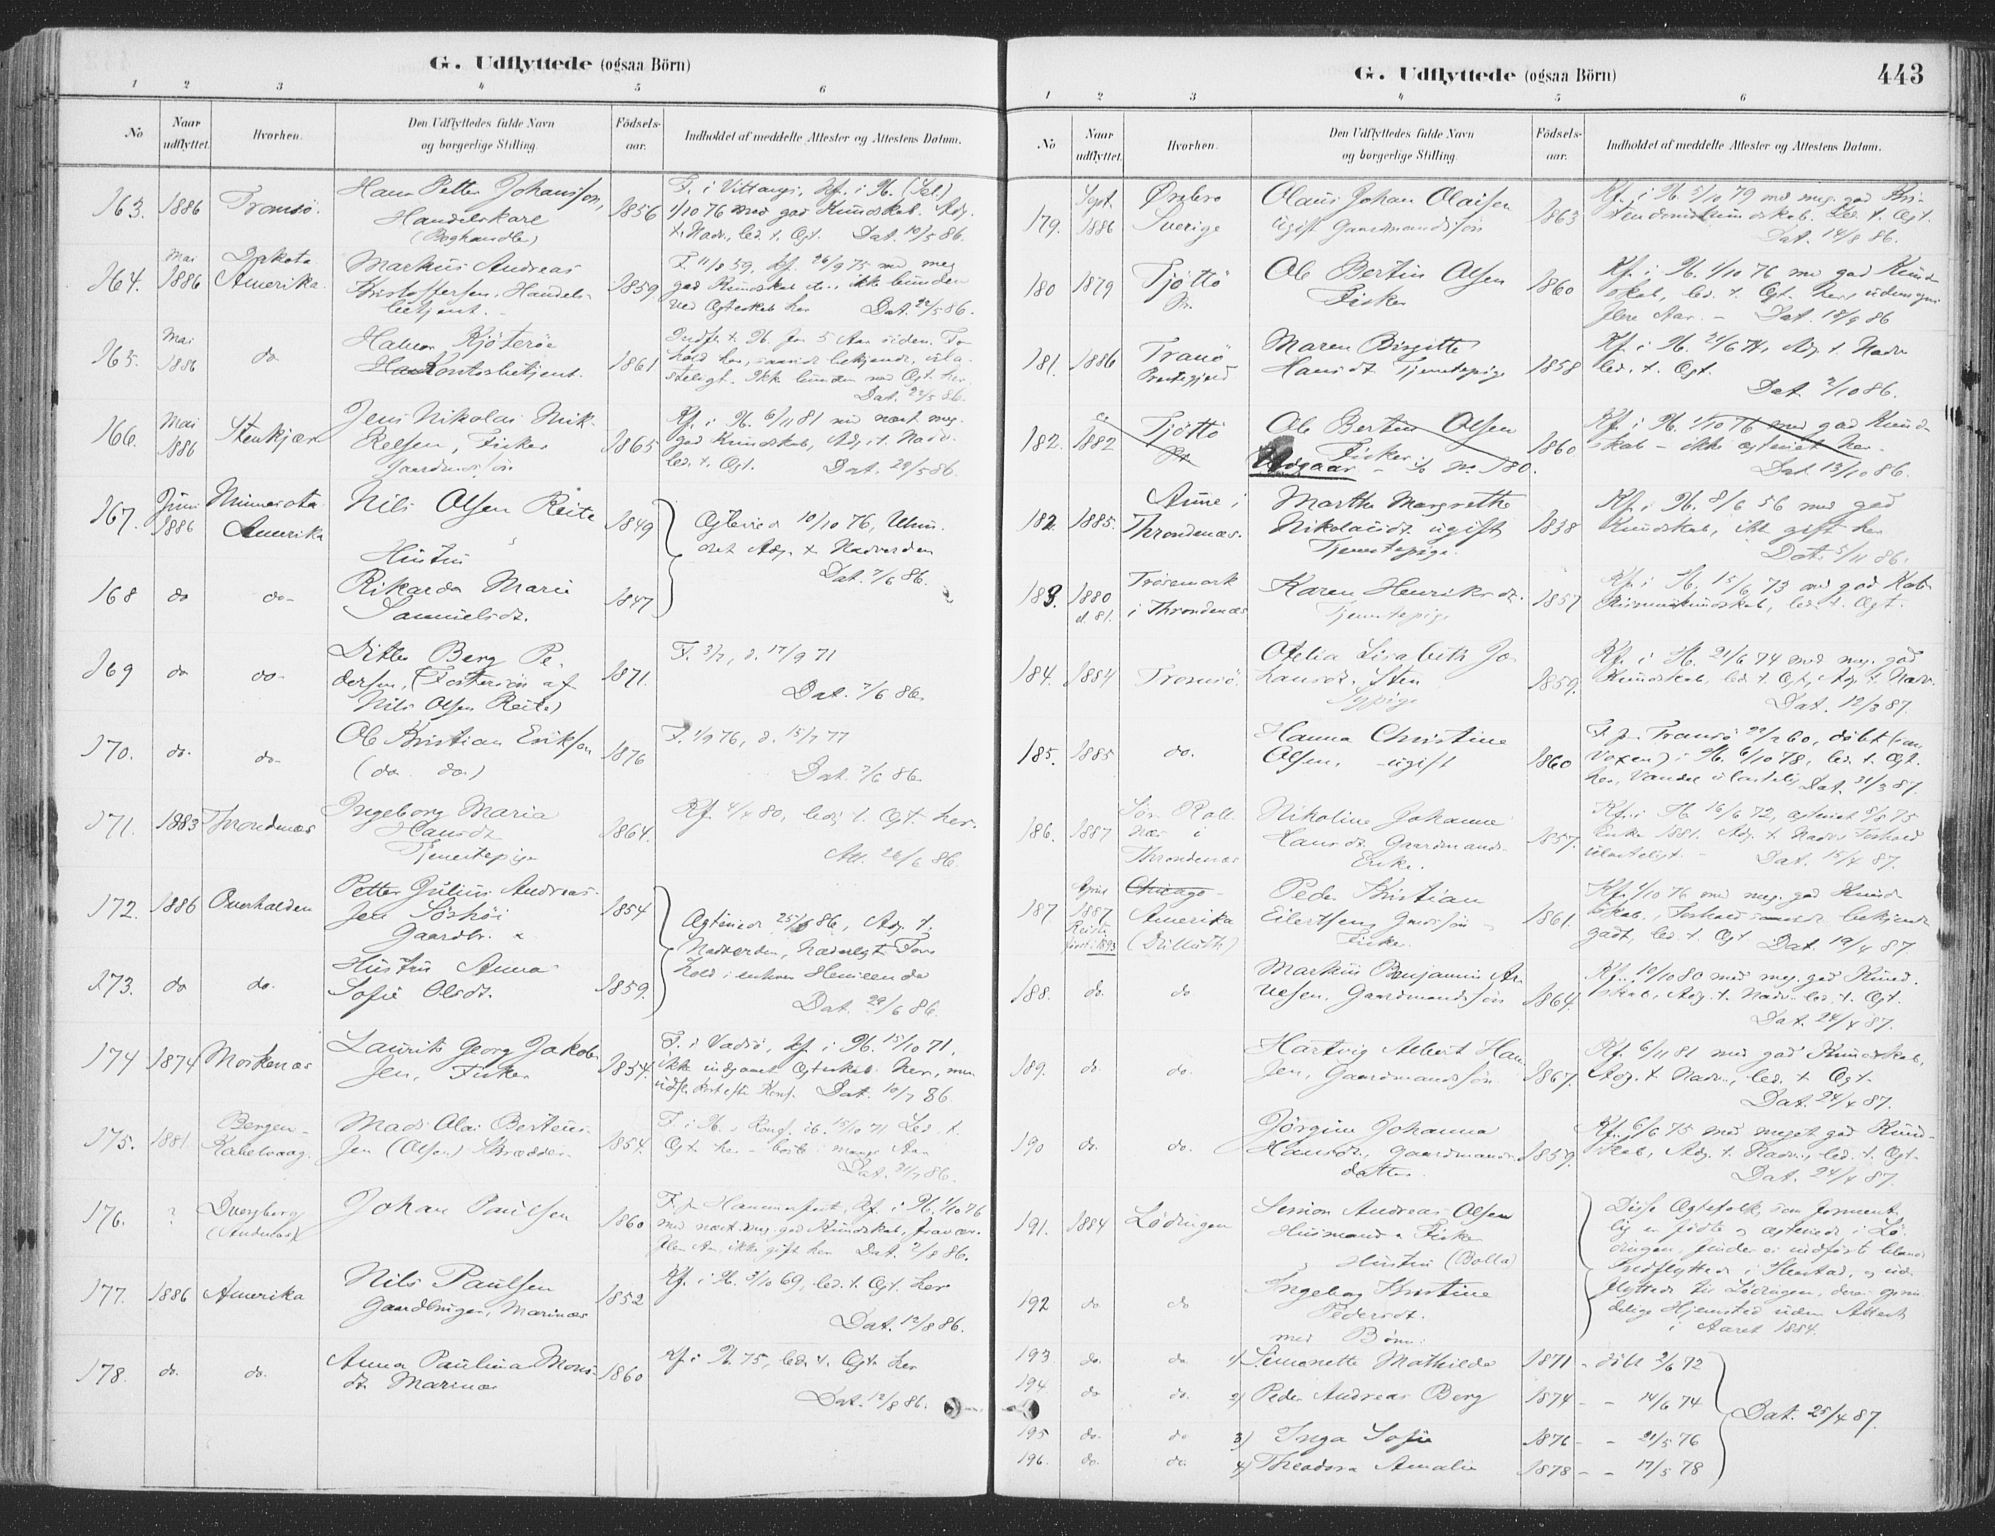 G. Udflyttede (ogsaa Börn)
1 2 3 4 5 6
No
Naar udflyttet.
Hvorhen.
Den Udflyttedes fulde Navn og borgerlige Stilling.
Födsels-aar.
Indholdet af meddelte Attester og Attestens Datum.
163. 1886 Tromsö. Hans Petter Johansson,
Handelskarl
(Boghandler) 1856
1/10 76 med god Kundskab. Adg.
t. Nadv., led. t. Egt. Dat. 10/5 86.
164. Mai 1886 Dakota Amerika. Markus Andreas
Kristoffersen, Handels-
betjent. 1859
F. 11/8 59, kf. 26/9 75 med meg
god Kundskab do., ikke bunden
ved Egteskab her Dat. 22/5 86.
165. Mai 1886 do
Kontorbetjent. 1861
Dat. 22/5 86.
166. Mai 1886 Stenkjær Jens Nikolai Mik-
kelsen, Fisker
Gaardmandssön 1865
Kf. i Kb. 6/11 81 med næst meg.
god Kundskab, Adg. t. Nadv.
led. t. Egt. Dat. 28/5 86.
167. Juni 1886 Minnesota Amerika Nils Olsen Reite 1849
Egteviet 10/10 76, Uhin-
dret Adg. t. Nadverden
Dat. 7/6 86.
Hustru
168 do do Rikarda Marie
Samuelsdt. 1847
169 do do Ditlev Berg Pe-
dersen, (Fostersön af
Nils Olsen Reite) 1871.
F. 3/7, d. 17/9 71
Dat. 7/6 86.
170. do. do. Ole Kristian Erikson
(do do) 1876
F. 1/9 76, d. 15/7 77
Dat. 7/6 86.
171. 1883 Throndenæs Ingeborg Maria
Hansdt.
Tjenestepige 1864.
Kf. 4/4 80, ledig t. Egt. her.
Att. 26/6 86.
172. 1886 Overhalden Petter Julius Andreas-
sen Söshöi
Gaardbr. & 1854
Egteviet 25/6 86, Adg. t.
Nadverden, Hæderligt For-
hold i enhver Henseende
Dat. 29/6 86.
173. do do. Hustru Anna
Sofie Olsdt. 1859.
174 1874 Moskenæs Laurits Georg Jakob-
sen, Fisker 1854.
F. i Vadsö, kf. i Kb. 15/10 71,
ikke indgaaet Egteskab her, men
udfl. kort efter Konf. Dat. 10/7 86.
175. 1881. Bergen-
Kabelvaag. Mads Olai Bertheus-
sen (Olsen) Skrædder 1854.
F. i Kb. & Konf. ib. 15/10 71 Led. t.
Egt. her - borte i mange Aar
Dat. 21/7 86.
176. ? Dverberg
(Andenes) Johan Paulsen 1860
F. p. Hammerfest, Kf. i Kb. 1/10 76
med næst meg. god Kundskab, fravær.
flere Aar, ikke gift her Dat. 2/8 86.
177. 1886 Amerika Nils Paulsen
Gaardbruger, Marinæs 1852
Kf. i Kb. 3/10 69, led. t. Egt. her
Dat. 12/8 86.
178. do. do. Anna Paulina Mons-
dt. Marinæs 1860
Kf. i Kb. 75, led. t. Egt. her
Dat. 12/8 86.
G. Udflyttede (ogsaa Börn)
443
1 2 3 4 5 6
No
Naar udflyttet.
Hvorhen.
Den Udflyttedes fulde Navn og borgerlige Stilling.
Födsels-aar.
Indholdet af meddelte Attester og Attestens Datum.
179. Sept. 1886 Örebro Sverige Olaus Johan Olaisen
Ugift Gaardmandssön 1863
Kf. i Kb. 5/10 79 med meg. god Kri-
stendomskundskab. Led. t. Egt.
Dat. 14/8 86.
180 1879 Tjöttö Pr. Ole Bertin Olsen
Fisker 1860
Kf. i Kb. 1/10 76 med god Kund-
skab, led. t. Egt. her
flere Aar. - Dat. 18/9 86
181. 1886 Tranö Prestegjeld Maren Birgitte
Hansdt. Tjenestepige 1858
Kf. i Kb. 21/6 74, Adg. t. Nadv
led. t. Egt.
Dat. 2/10 86.
182. ca 1882 Tjöttö Pr. Ole Bertin Olsen
Fisker.
Udgaar - se No. 180. 1860
Kf. i Kb. 1/10 76 med god Kund-
skab - ikke egteviet her.
Dat. 13/10 86.
182. 1885. Aune i
Throndenæs. Martha Margrethe
Nikolaisdt. ugift
Tjenestepige. 1838
Kf. i Kb. 8/6 56 med god
Kundskab, ikke gift her
Dat. 5/11 86.
183. 1880 el. 81. Trösemark
i Throndenæs Karen Henriksdt.
Tjenestepige 1857
Kf. i Kb. 15/6 73 med god
Kundskab, led. t. Egt.
184. 1884 Tromsö. Ofelia Lisabeth Jo-
hansdt. Sten
Sypige 1859.
Kf. i Kb. 21/6 74 med meg. god
Kundskab, led. t. Egt., Adg. t. Nadv.
Dat. 12/3 87.
185. 1885 do. Hanna Christine
Olsen, ugift 1860
F. p. Tromsö 22/2 60, döbt (som
voxen) i Kb. 6/10 78, led. t. Egt.
her, Vandel ulastelig Dat. 21/3 87.
186. 1887 Sör Roll-
næs i
Throndenæs Nikoline Johanne
Hansdt. Gaardmands
Enke. 1857.
Kf. i Kb. 16/6 72, egteviet 9/8 75
Enke 1881. Adg. t. Nadv. Forhold
ulasteligt. - Dat. 15/4 87.
187 April 1887 Chicago -
Amerika
(Dulluth) Peder Kristian
Eilertsen, Gmdssön
Fisker. 1861.
Kf. 1/10 76 med meg. god Kund-
skab, Forhold saavidt bekjendt
godt, led. t. Egt. Dat. 19/4 87.
188. do. do Markus Benjamin Ar-
nesen, Gaardmandssön 1864.
Kf. 10/10 80 med meg. god Kund-
skab, Adg. t. Nadv. led. t. Egt.
Dat. 24/4 87.
189. do. do. Hartvig Albert Han-
sen, Gaardmandssön 1867.
Kf. 6/11 81 med god Kundskab,
Adg. t. Nadv., led. t. Egt.
Dat. 24/4 87.
190 do. do. Jörgine Johanna
Hansdt., Gaardmands-
datter 1859.
Kf. 6/6 75 med meget god Kund-
skab, Adg. t. Nadv., led. t. Egt.
Dat. 24/4 87.
191. 1884 Lödingen Simon Andreas Olsen
Husmand & Fisker
& Hustru (Bolla)
Disse Egtefolk, som forment-
lig er födte og egteviede i Lö-
dingen, findes ei indförte blandt
Indflyttede i Harstad, og ud-
flyttede til Lödingen, deres oprin-
delige Hjemsted uden Attest
i Aaret 1884.
192 do do Ingeborg Kristine
Pedersdt.
med Börn:
193 do. do 1) Simonette Mathilde 1871 - döbt 2/6 72
194 do do. 2) Peder Andreas Berg 1874 - - 14/6 74
Dat. 25/4 87.
195 do. do 3) Inga Sofie 1876 - - 21/5 76
196. do. do. 4) Theodora Amalie 1878 - - 17/5 78